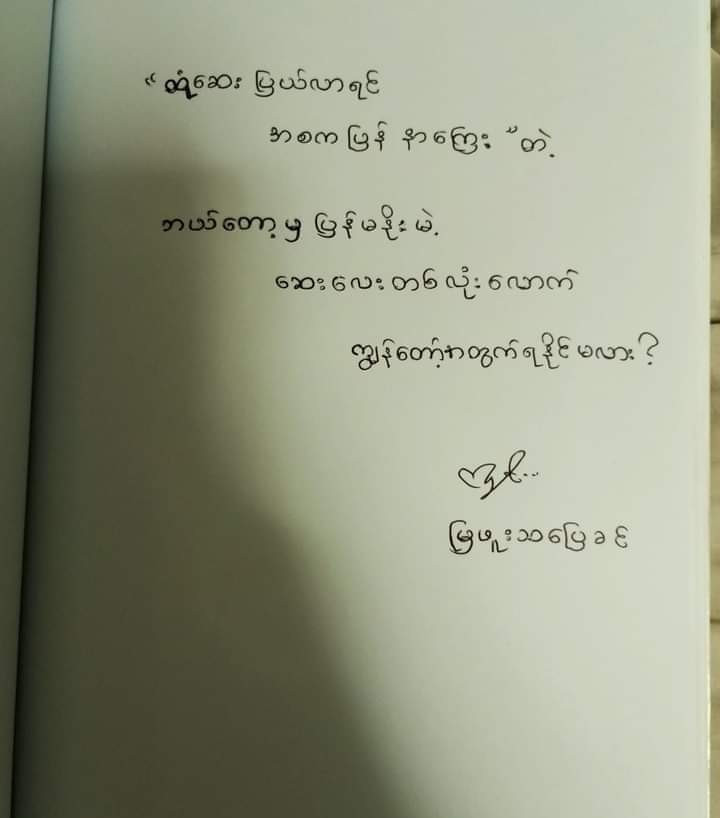 “ ထုံဆေး ပြယ်လာရင်
အစက ပြန် နာကြေး ” တဲ့
ဘယ်တော့မှ ပြန်မနိုးမဲ့
ဆေးလေးတစ်လုံးလောက်
ကျွန်တော့်အတွက်ရနိုင်မလား ?
မြဖူးသပြေခင်